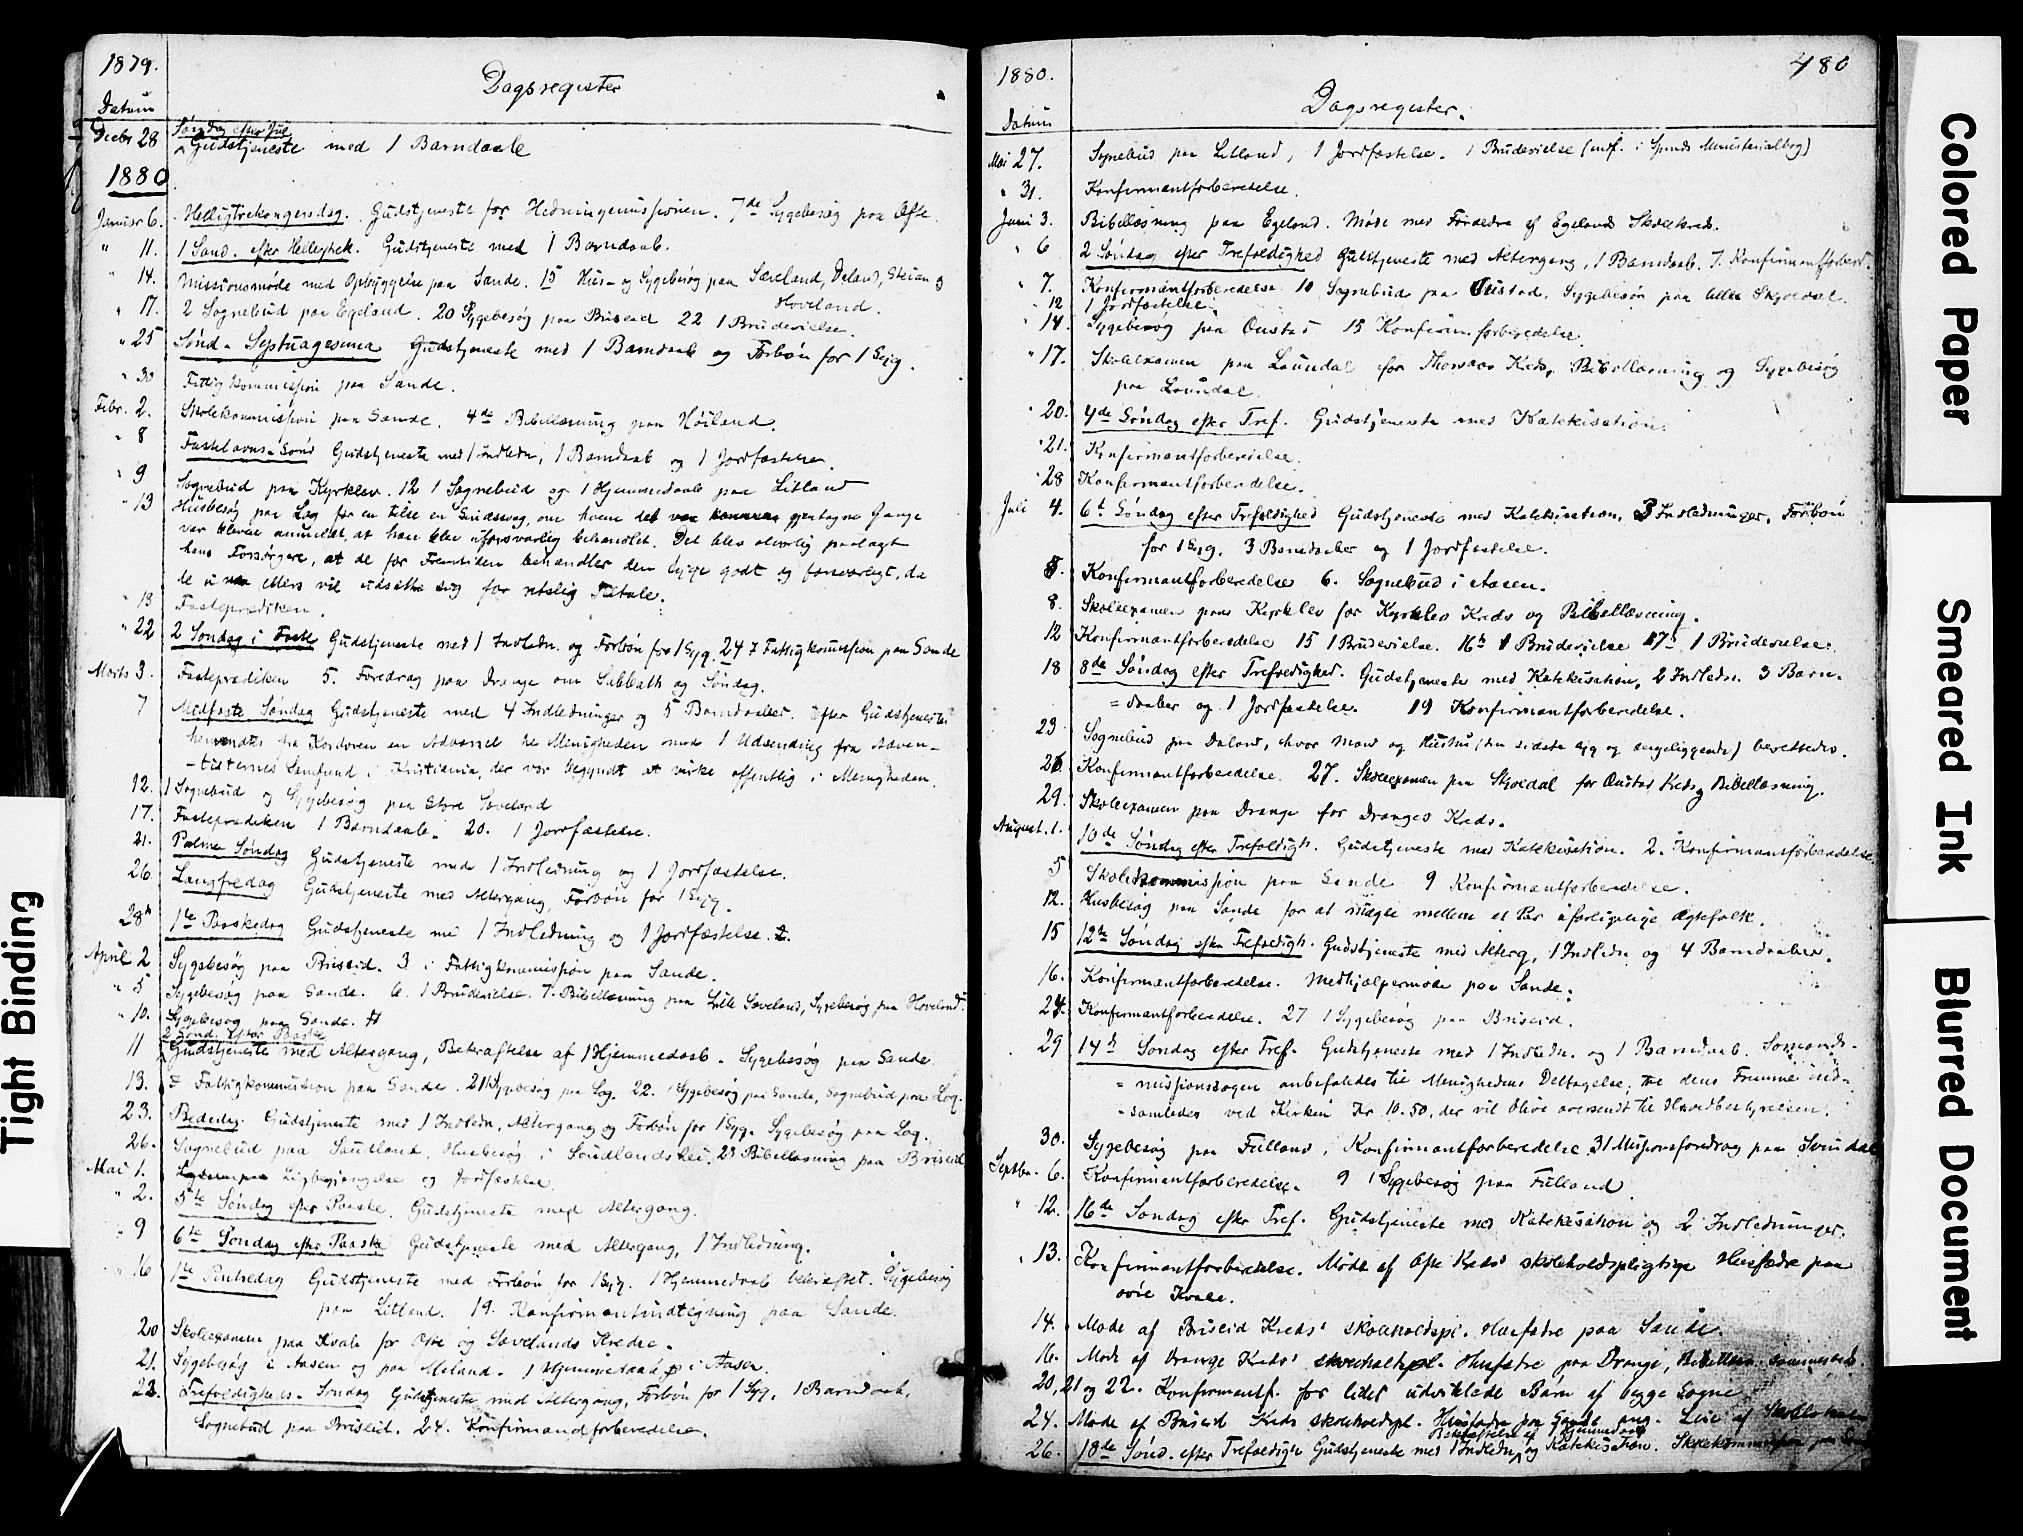 1879.
Dagsregister
Datum
Decbr 28 Søndag efter Jul
Gudstjeneste med 1 Barndaab
1880
Januar 6. Helligtrekongersdag. Gudstjeneste for Hedningemissionen. 7de Sygebesøg paa Øfte.
" 11. 1 Sønd. efter Helligtrek. Gudstjeneste med 1 Barndaab.
" 14. Missionsmøde med Opbyggelse paa Sande. 15 Hus- og Sygebesøg paa Sæveland, Deland, og
Hoveland.
" 17. 2 Sognebud paa Egeland. 20 Sygebesøg paa Briseid 22 1 Brudevielse.
" 25 Sønd. Septuagesima Gudstjeneste med 1 Barndaab og Forbøn for 1 Syg.
" 30 Fattigkommission paa Sande.
Febr. 2. Skolekommission paa Sande. 4de Bibellæsning paa Høiland.
" 8 Fastelavns-Sønd Gudstjeneste med 1 Indledn, 1 Barndaab og 1 Jordfæstelse.
" 9 Sognebud paa Kyrklev. 12 1 Sognebud og 1 Hjemmedaab paa Litland
" 13 Husbesøg paa Log for en tilse en Sindssvag, om hvem det var kommen gjentagne Gange
var bleven anmeldt, at han blev uforsvarlig behandlet. Det blev alvorlig paalagt
hans Forsørgere, at de for Fremtiden behandler den Syge godt og forsvarligt, da
de i ellers vil udsætte sig for retslig Tiltale.
" 13 Fasteprædiken.
" 22 2 Søndag i Faste Gudstjeneste med 1 Indledn. og Forbøn for 1 Syg. 24 Fattigkommission paa Sande
Marts 3. Fasteprædiken 5. Foredrag paa Drange om Sabbath og Søndag.
7 Midfaste Søndag Gudstjeneste med 4 Indledninger og 5 Barndaaber. Efter Gudstjenesten
henvendtes fra Kordøren en Advarsel til Menigheden mod 1 Udsending fra Adven-
-tisternes Samfund i Kristiania, der var begyndt at virke offentlig i Menigheden.
12. 1 Sognebud og Sygebesøg paa Store Sæveland
17. Fasteprædiken 1 Barndaab. 20. 1 Jordfæstelse.
21. Palme Søndag Gudstjeneste med 1 Indledning og 1 Jordfæstelse.
26 Langfredag Gudstjeneste med Altergang, Forbøn for 1 Syg.
28de 1ste Paaskedag Gudstjeneste med 1 Indledning og 1 Jordfæstelse.
April 2 Sygebesøg paa Briseid. 3 i Fattigkommission paa Sande.
" 5 Sygebesøg paa Sande. 6. 1 Brudevielse. 7. Bibellæsning paa Lille Sæveland, Sygebesøg paa Hoveland.
" 10. Sygebesøg paa Sande.
2 Sønd. efter Paaske
11 Gudstjeneste med Altergang, Bekræftelse af 1 Hjemmedaab. Sygebesøg paa Sande.
13. Fattigkommission paa Sande. 21 Sygebesøg paa Log. 22. 1 Sygebesøg paa Sande, Sognebud paa Log.
23. Bededag. Gudstjeneste med 1 Indledn, Altergang og Forbøn for 1 Syg. Sygebesøg paa Log.
26. Sognebud paa Saudland, Husbesøg i Saudlandshei. 28 Bibellæsning paa Briseid
Mai 1. Ligbegjængelse og Jordfæstelse.
" 2. 5te Søndag efter Paaske. Gudstjeneste med Altergang.
" 9 6te Søndag efter Paaske Gudstjeneste med Altergang, 1 Indledning.
" 16 1ste Pintsedag Gudstjeneste med Forbøn for 1 Syg. 1 Hjemmedaab bekræftet. Sygebesøg
paa Litland. 19. Konfirmantudtegning paa Sande.
20 Skoleexamen paa Kvale for Øfte og Sævelands Kredse.
21. Sygebesøg i Aasen og paa Meland. 1 Hjemmedaab i Aasen.
23. Trefoldigheds-Søndag Gudstjeneste med Altergang, Forbøn for 1 Syg, 1 Barndaab,
Sognebud paa Briseid. 24. Konfirmandforberedelse.
480
1880.
Dagsregister.
Datum
Mai 27. Sognebud paa Litland, 1 Jordfæstelse. 1 Brudevielse (indf. i Spinds Ministerialbog)
" 31. Konfirmantforberedelse.
Juni 3. Bibellæsning paa Egeland. Møde med Forældre af Egelands Skolekreds.
" 6 2 Søndag efter Trefoldighed Gudstjeneste med Altergang, 1 Barndaab. 7. Konfirmantforbered.
" 7. Konfirmantforberedelse 10 Sognebud paa Øustad. Sygebesøg paa lille Skjoldal.
" 12 1 Jordfæstelse.
" 14. Sygebesøg paa Øustad 15 Konfirm.forberedelse.
" 17. Skolexamen paa Laundal for Kreds, Bibellæsning og Sygebesøg
paa Laundal.
" 20. 4de Søndag efter Tref. Gudstjeneste med Katekisation.
" 21. Konfirmantforberedelse.
" 28 Konfirmantforberedelse.
Juli 4. 6te Søndag efter Trefoldighed Gudstjeneste med Katekisation, 3 Indledninger, Forbøn
for 1 Syg. 3 Barndaaber og 1 Jordfæstelse.
5. Konfirmantforberedelse 6. Sognebud i Aasen.
8. Skoleexamen paa Kyrklev for Kyrklev Kreds og Bibellæsning.
12 Konfirmantforberedelse 15 1 Brudevielse. 16de 1 Brudevielse 17de 1 Brudevielse.
18 8de Søndag efter Trefoldighed. Gudstjeneste med Katekisation, 2 Indledn. 3 Barn-
=daaber og 1 Jordfæstelse. 19 Konfirmantforberedelse.
23. Sognebud paa Daland, hvor Mand og Hustru (den sidste syg og sengeliggende) berettedes.
26 Konfirmantforberedelse. 27. Skoleexamen paa Skjoldal for Øustad Kreds, Bibellæsning.
29. Skoleexamen paa Drange for Dranges Kreds.
August. 1. 10de Søndag efter Trefoldigh. Gudstjeneste med Katekisation. 2. Konfirmantforberedelse
5 Skolekommission paa Sande 9 Konfirmantforberedelse.
12. Husbesøg paa Sande for at mægle mellem et Par uforligelige Ægtefolk.
15 12te Søndag efter Trefoldigh. Gudstjeneste med Alterg, 1 Indledn og 4 Barndaaber.
16. Konfirmantforberedelse. Medhjælpermøde paa Sande.
24. Konfirmantforberedelse. 27 1 Sygebesøg paa Briseid.
29 14de Søndag efter Tref. Gudstjeneste med 1 Indledn. og 1 Barndaab. Sømands-
=missionssagen anbefaledes til Menighedens Deltagelse; til dens Fremme ind-
=samledes ved Kirken Kr 10.50, der vil blive oversendt til Hovedbestyrelsen.
30. Sygebesøg paa Fuland, Konfirmantforberedelse. 31 Missionsforedrag paa Svindal
Septbr. 6. Konfirmantforberedelse. 9 1 Sygebesøg paa Fuland.
" 12. 16de Søndag efter Tref. Gudstjeneste med Katekisation og 2 Indledninger.
" 13. Konfirmantforberedelse. Møde af Øfte Kreds' skoleholdspligtige Husfædre paa
øvre Kvale.
14. Møde af Briseid Kreds' skoleholdspl. Husfædre paa Sande.
16. Møde af Drange Kreds' skoleholdspl. Husfædre paa Drange, Bibellæsn. sammesteds.
20, 21 og 22. Konfirmantf. for lidet udviklede Børn af begge Sogne
24. Møde af Briseid Kreds skoleholdspl. Husfædre paa Sande ang. Leie af
Bekræftelse af 1 Hjemmedaab
26. 18de Sønd. efter Trefoldigh Gudstjeneste med 1 Indledn, og Katekisation. Skolekommission paa
Tight Binding
Colored Paper
Smeared Ink
Blurred Document